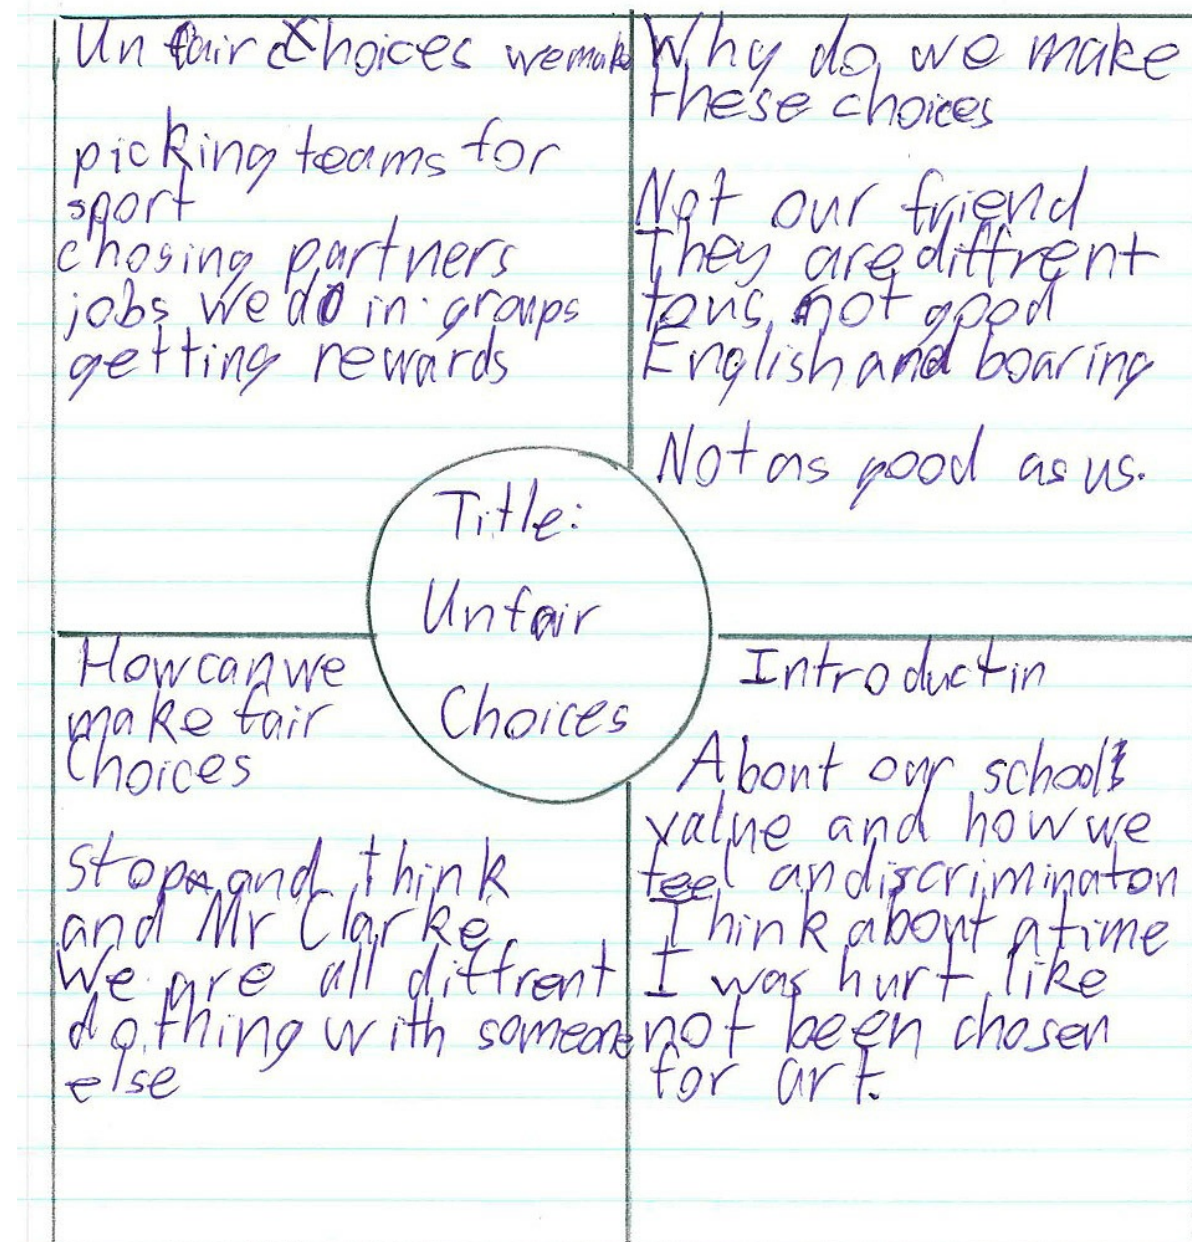 Unfair Choices we make
picking teams for
sport
chosing partners
jobs we do in groups
getting rewards
Why do we make
these choices
Not our friend
They are diffrent
to us, not good
English and boaring
Not as good as us.
Title:
Unfair
Choices
How can we
make fair
Choices
Stop and think
and Mr Clarke
We are all diffrent
do thing with someone
else
Introductin
About our school's
value and how we
feel an discriminaton
Think about a time
I was hurt like
not been chosen
for art.